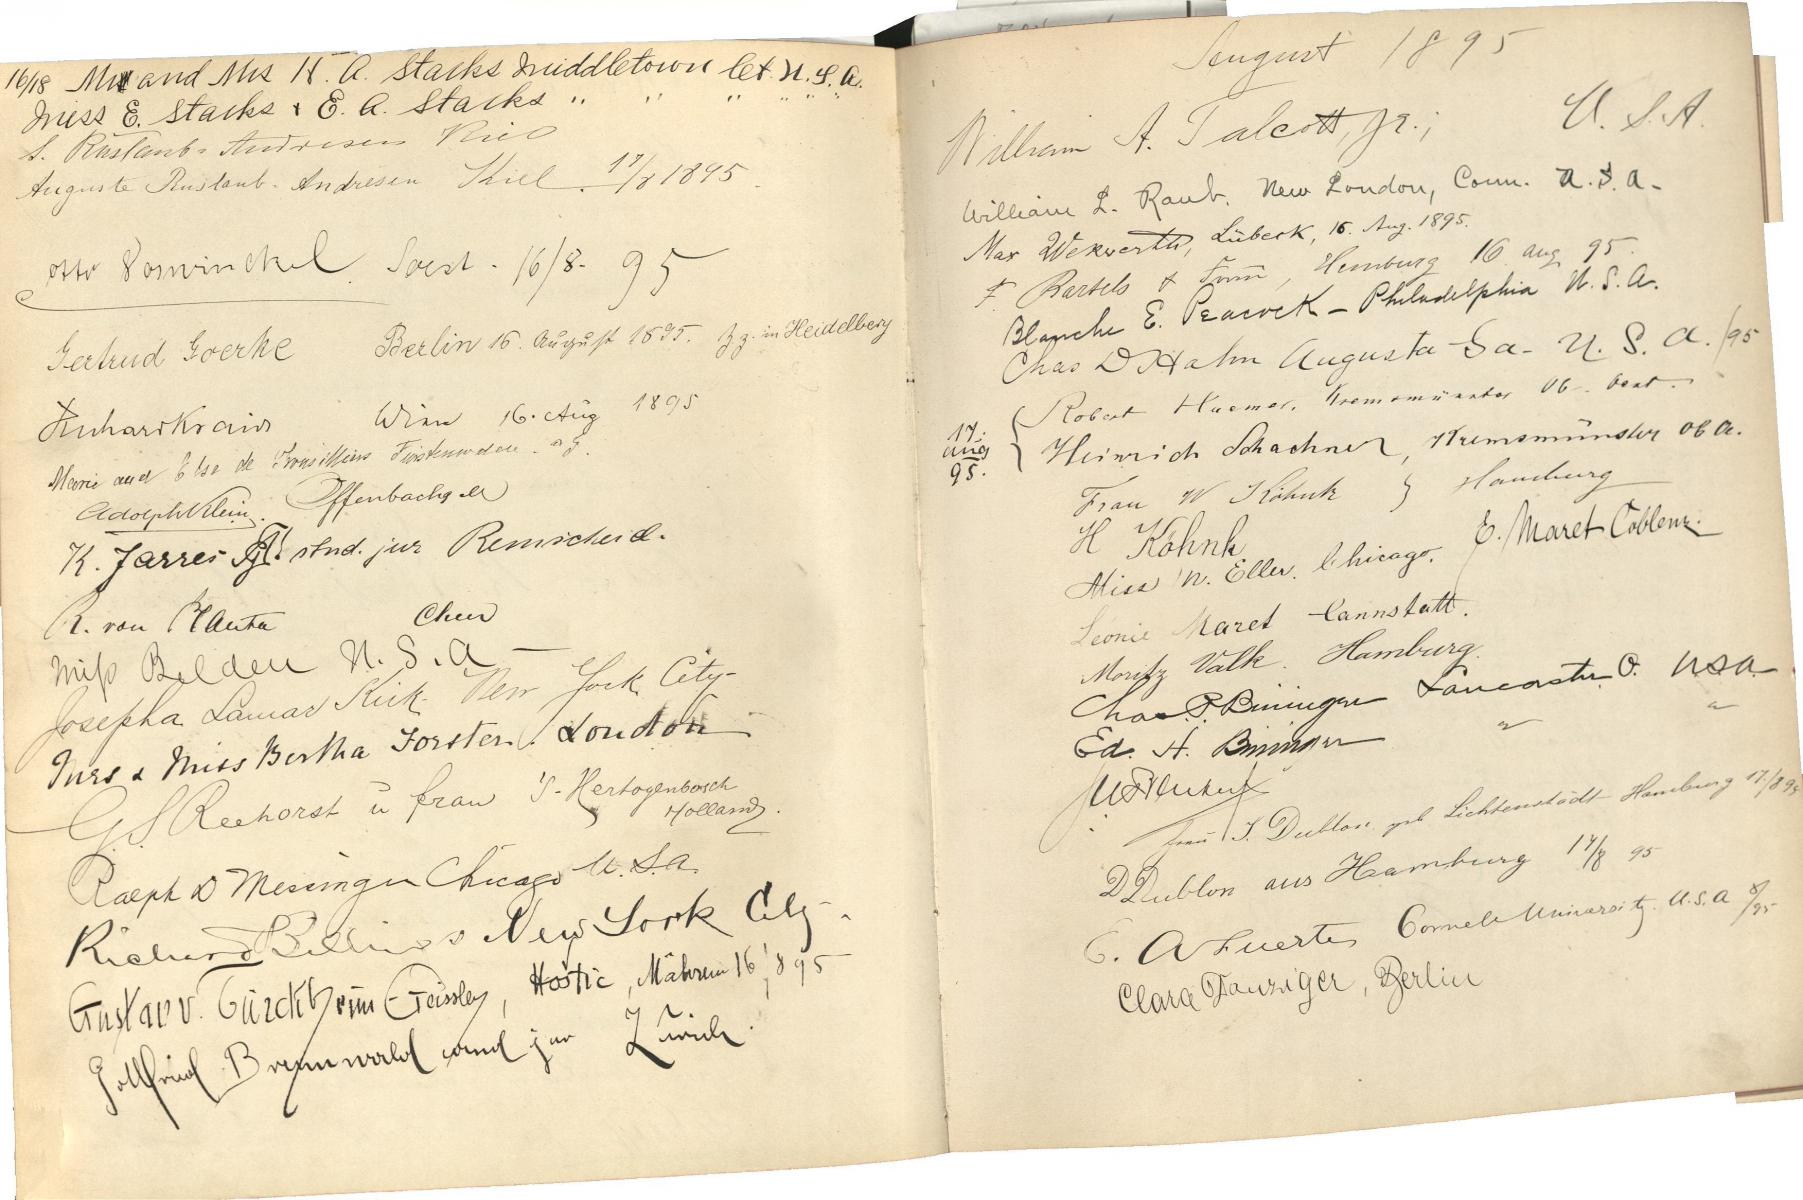 16/18 Mr and Mrs H. A. Starks Middletown Ct. U.S.A.
Miss E. Starks & E. A. Starks " " " " " "
S. Rustaub-Andresen Kiel
Auguste Rustaub-Andresen Kiel. 17/8 1895.
Otto Vorwinckel. Soest. 16/8. 95
Gertrud Goerke Berlin 16. August 1895. Zz. in Heidelberg
Wien 16. Aug 1895
Marie und Else de
Adolph Klein. Offenbach a/M
K. Jarres stud. jur Remscheid.
R. von Planta Chur
Miss Belden U.S.A
Josepha Lamar Kick New York City-
Mrs & Miss Bertha Forster. London
G. S. Reehorst u frau 's-Hertogenbosch
Holland.
Ralph D Messinger Chicago U.S.A.
Richard Billings New York City-.
Gustav v. Türckheim-Geissley, Hostic, Mähren 16/8 95
Gottfried Brennwald cand jur Zürich.
August 1895
William A. Talcott, Jr.; U.S.A.
William L. Raub. New London, Conn. U.S.A.
Max Wekwerth, Lübeck, 16. Aug. 1895.
F. Bartels & Frau, Hamburg 16 aug 95.
Blanche E. Peacock - Philadelphia U.S.A.
Chas D Hahn Augusta Ga- U.S.A. /95
17. aug 95. { Robert Huemer, Kremsmünster Ob.-Oest.
Heinrich Schachner, Kremsmünster Ob Oe.
Frau W Köhnk } Hamburg
H Köhnk
Miss N. Eller. Chicago. E. Maret Coblenz.
Leonie Maret Cannstatt.
Moritz Valk. Hamburg.
Chas. P. Bininger Lancaster O. USA
Ed. A. Bininger " "
Frau J. Dublon geb Lichtenstädt Hamburg 17./8 95
D Dublon aus Hamburg 17/8 95
E. A Fuertes Cornell University. U.S.A 8/95
Clara Danziger, Berlin